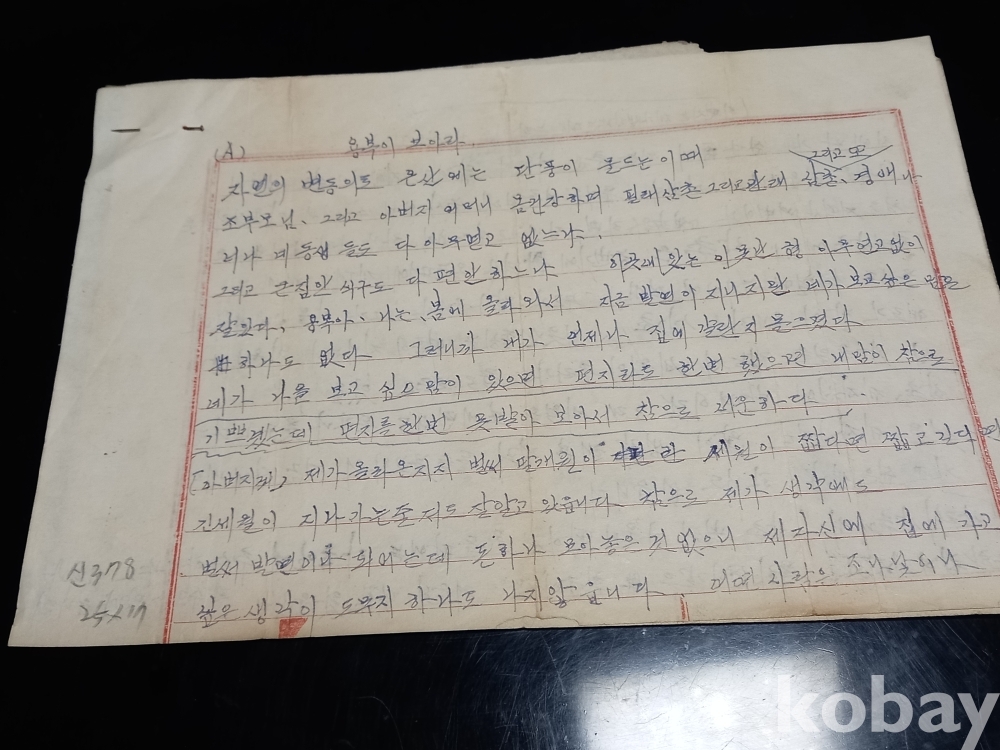 (A) 용부이 보아라.
자연의 변동의도 온산에는 단풍이 물드는 이때
그리고 또
조부모님, 그리고 아버지 어머니 몸건강하며 필래삼촌 그리고 삼촌, 경애나
리나 네동생들도 다 아무면고 없느냐.
그리고 큰집안 식구도 다 편안하느냐 이곳에 있는 이못난 형 아무연고없이
잘있다, 용부야, 나는, 봄에 올라와서 지금 반년이 지나지만 네가 보고싶은
하나도 없다 그러니까 내가 언제나 집에 갈란지 모르겠다
네가 나를 보고 싶으맘이 있으면 편지라도 한번 했으면 내맘이 참으로
기쁘겠는데 편지를 한번 못받아 보아서 참으로 서운하다
(아버지께) 제가 올라온지지 벌써 반개월이 세월이 짧다면 짧고 길다면
긴세월이 지나가는줄 저도 잘알고 있읍니다 참으로 제가 생각에도
벌써 반년이나 되어는데 돈하나 모아놓은 것 없으니 제자신에 집에 가고
싶은 생각이 도무지 하나도 나지않읍니다 사람은
신378
25x17
kobay